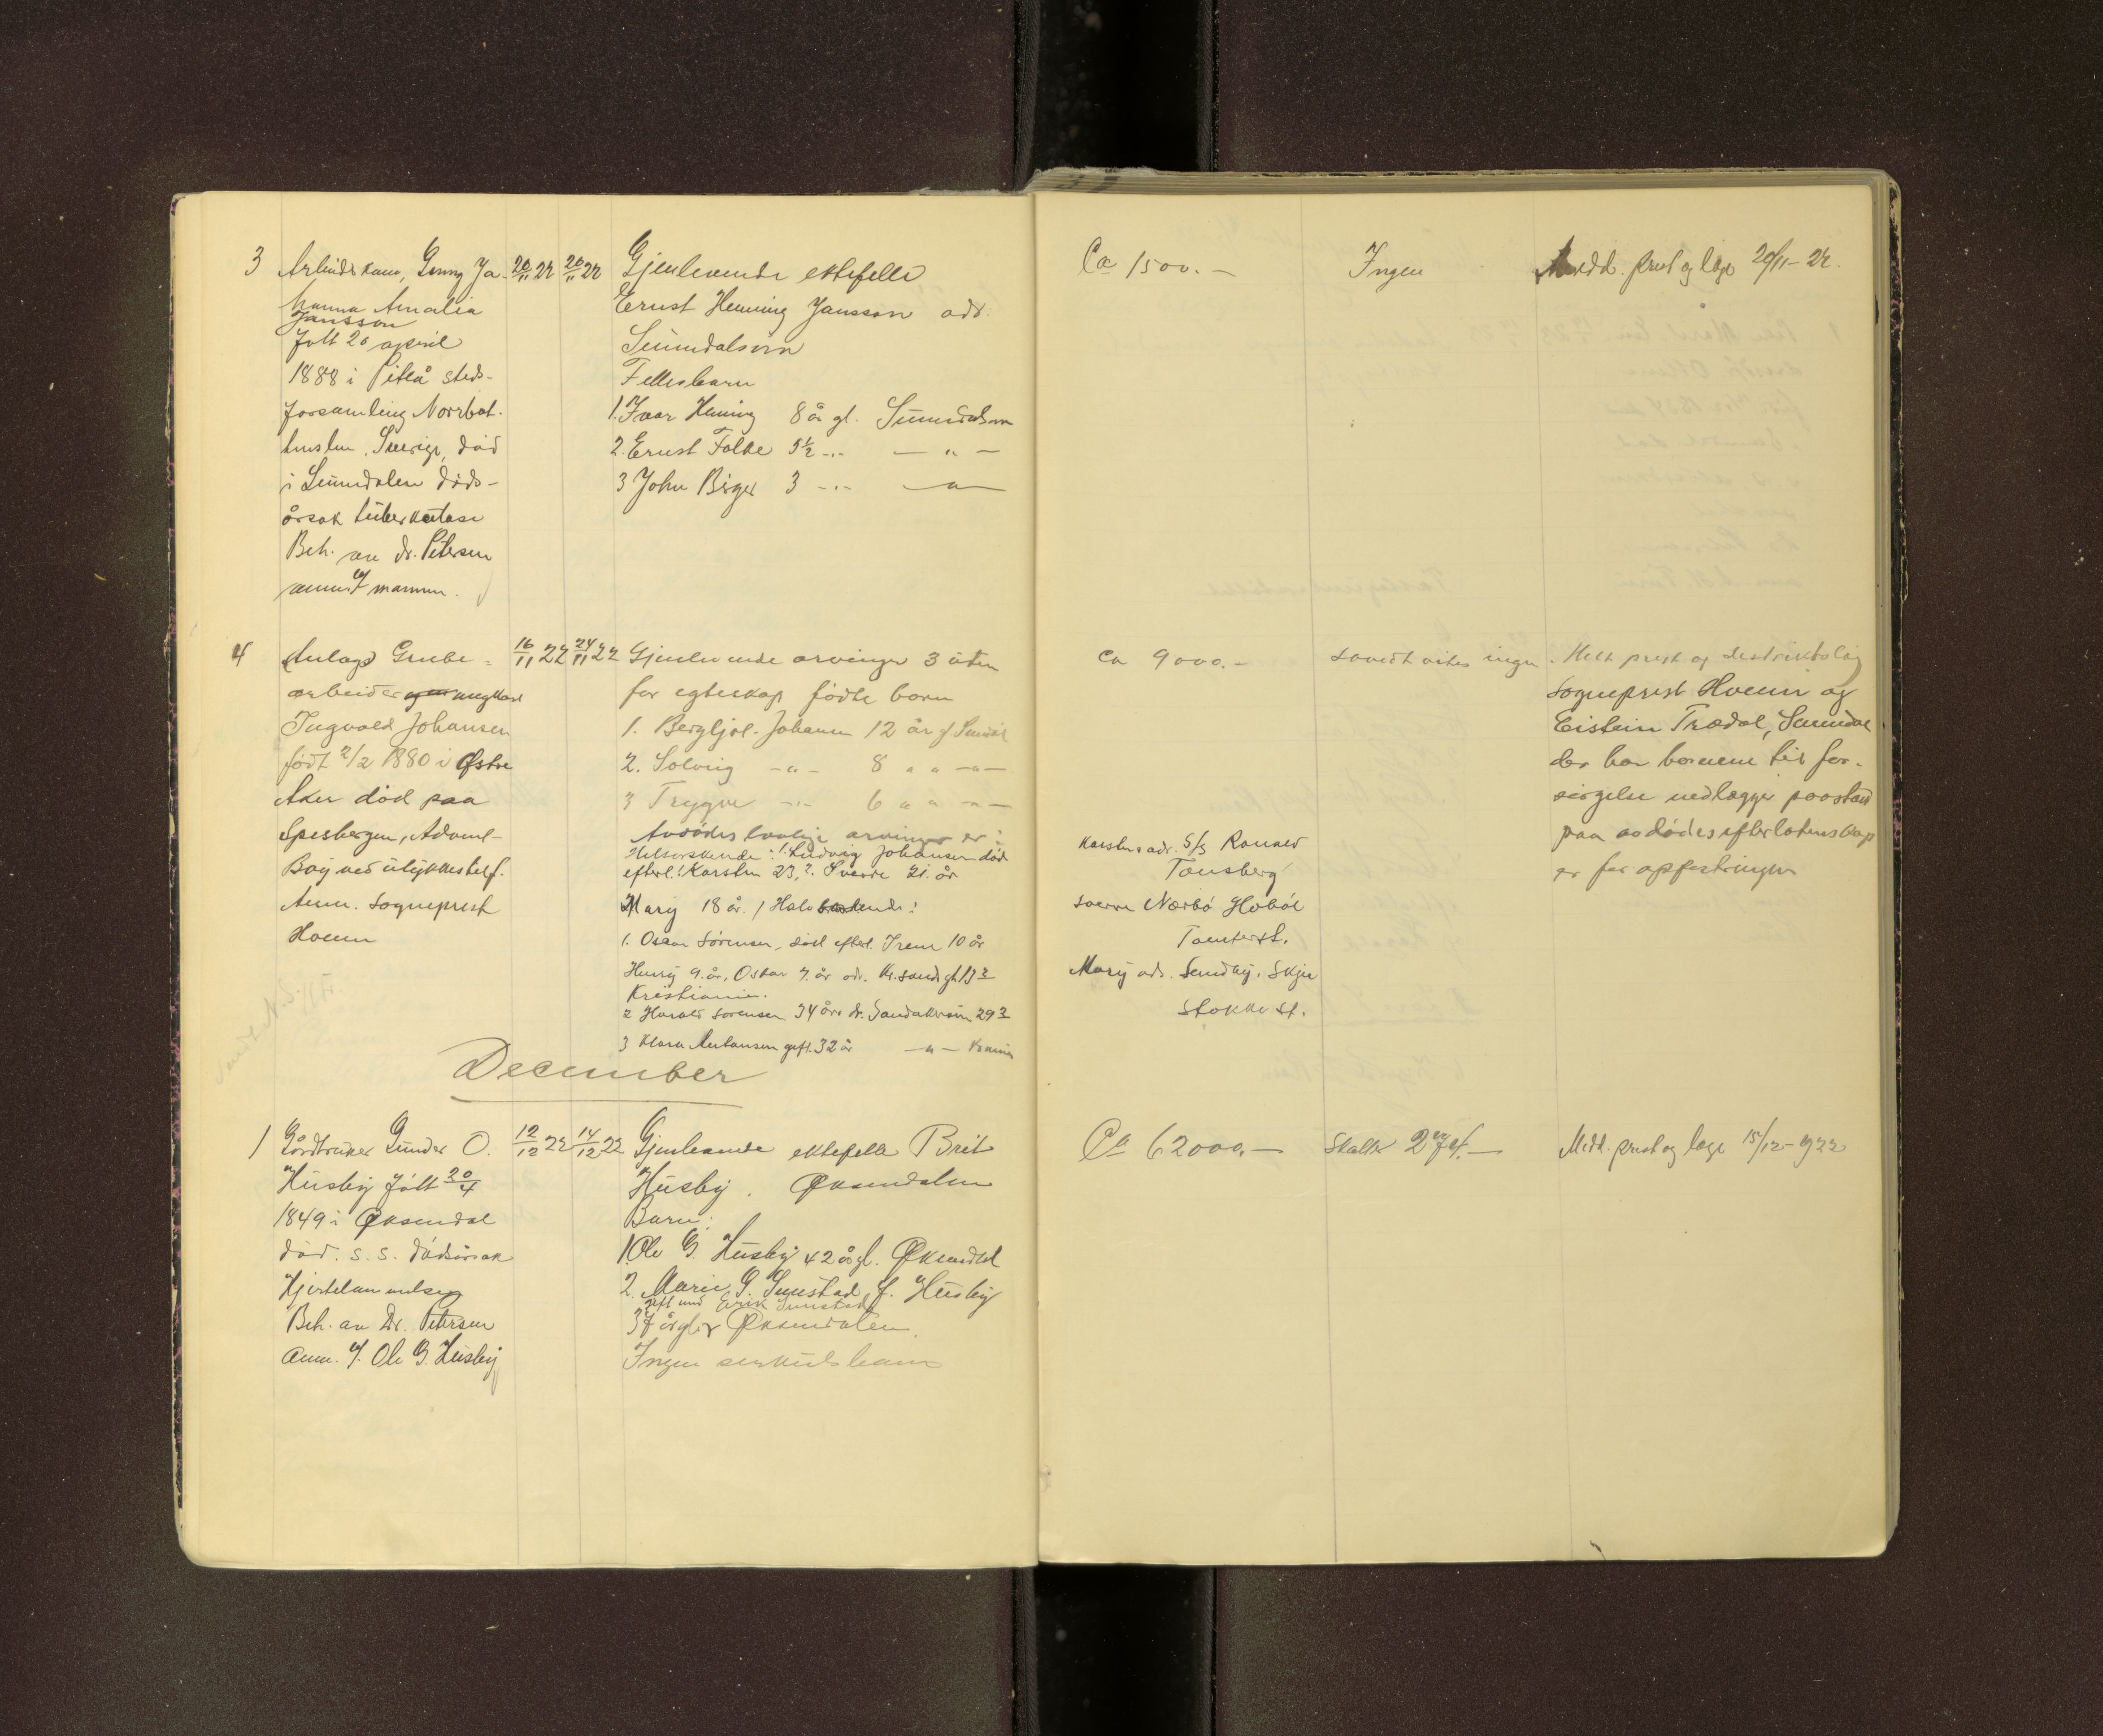 3 Arbeidskone, Genny Jo-
hanna Amalia
Jansson
født 20 april
1888 i Piteå steds-
forsamling Norrbot-
tenslen, Sverige, død
i Sunndalen døds-
årsak tuberkulose
Beh. av dr. Petersen
anm. af mannen.
20/11 22 20/11 22
Gjenlevende ektefelle
Ernst Henning Jansson adr.
Sunndalsøra
Fellesbarn
1. Ivar Henning 8 år gl. Sunndalsøra
2. Ernst Folke 5½ -"- — " —
3 John Birger 3 -"- — " —
Ca 1500.-
Ingen
Medd. prest og læge 20/11-22.
4 Anlægs Grube-
arbeider ungkar
Ingvald Johansen
født 2/2 1880 i Østre
Aker død paa
Spesbergen, Advent-
Bay ved ulykkestelf.
Anm. Sogneprest
Hoem
16/11 22 24/11 22
Gjenlevende arvinger 3 uten
for egteskap fødte barn
1. Bergljot Johansen 12 år
2. Solveig -"- 8 " " -"-
3 Trygve -"- 6 " " -"-
Avdødes lovlige arvinger er:
Helsøskende: 1. Ludvig Johansen død
efterl. 1. Karsten 23, 2. Sverre 21 år
Mary 18 år. / Halvsøskende:
1. Oscar Sørensen, død efterl. Irene 10 år
Henry 9 år, Oskar 7 år adr. Kr.sands gt. 13
Kristiania.
2 Harald Sorensen 34 år adr. Sandakerveien 29
3 Klara gift. 32 år — " —
ca 9000.-
Karstens adr. S/S Ranald
Tønsberg
Sverre Nærbø Hobøl
Mary adr. Sundby, Skjee
Stokke st.
savidt vites ingen
Medt prest og destriktslæg
Sogneprest Hoem og
Eistein Trædal, Sunndal
der har barnene til for-
sørgelse nedlægger paastand
paa avdødes efterlatenskap
er for opfostringen
December
1 Gårdbruker Gunder O.
Husby født 20/4
1849 i Øksendal
død. s. s. dødsårsak
Hjertelammelse
Beh. av Dr. Petersen
Anm. af. Ole G. Husby
12/12 22 14/12 22
Gjenlevende ektefelle Brit
Husby. Øksendalen
Barn:
1. Ole G. Husby 42 år gl. Øksendal
2. Marie G. Sunstad, f. Husby
gift med Erik Sunstad
37 år gl. Øksendalen
Ingen særkulsbarn
Ca 62000.-
Skatter
Medd. prest og læge 15/12-1922